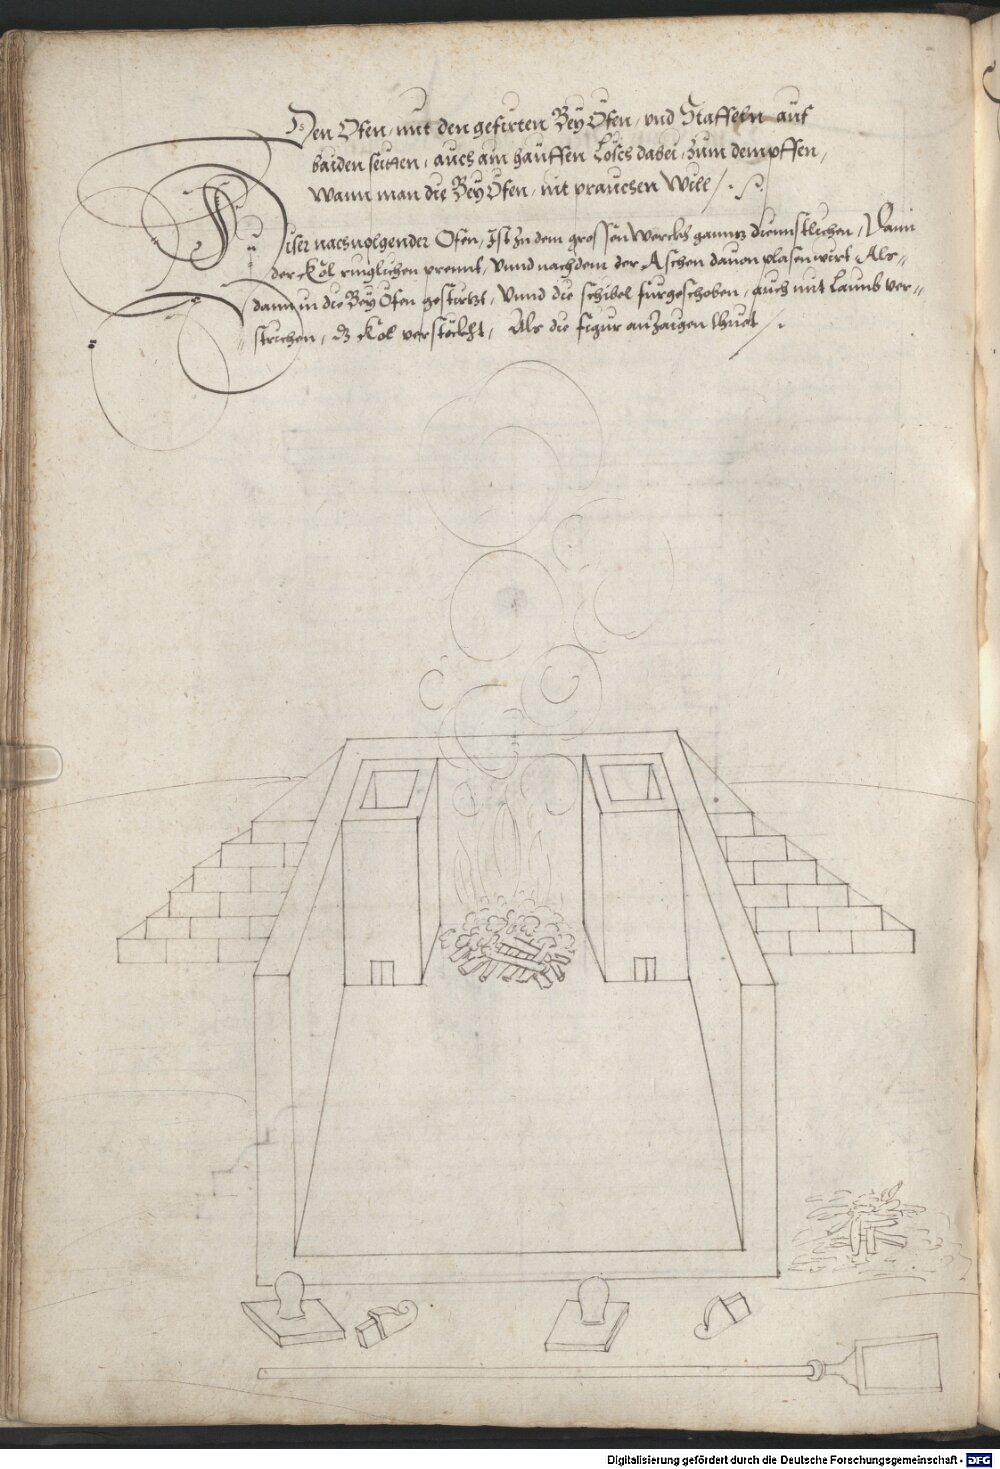 Den Ofen, mit den gefirten Beÿ Öfen, vnd Staffeln auf
baiden seitten, auch am hauffen Lösch dabei, zum dempffen,
Wann man die Beÿ Öfen, nit prauchen Will /.
Diser nachuolgender Ofen, Ist Zu dem grossen Werckh ganntz diennstlichen, Dann
der Kol ringlichen prennt, Vnnd nachdem der Aschen dauon plasen wirt Als=
dann in die Beÿ Öfen gesturtzt, Vnnd die schibel furgeschoben, auch mit Laimb ver=
strichen, dz Kol verstöckht, Als die figur anzaigen thuet /.
Digitalisierung gefördert durch die Deutsche Forschungsgemeinschaft - DFG